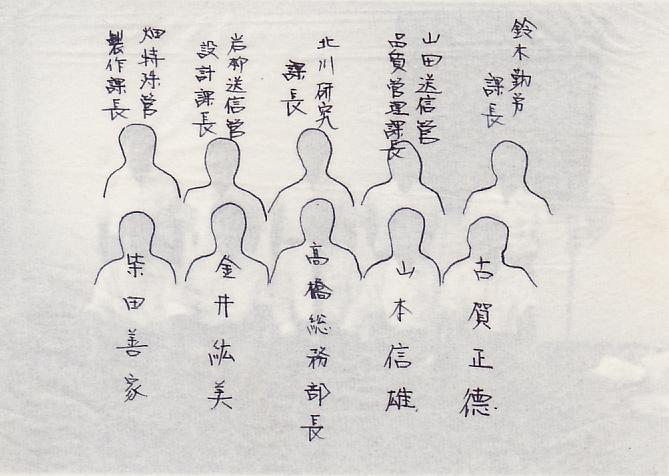 鈴木勤労
課長
山田送信管
品質管理課長
北川研究
課長
岩柳送信管
設計課長
畑特殊管
製作課長
古賀正德
山本信雄
高橋総務部長
金井紘美
柴田善家